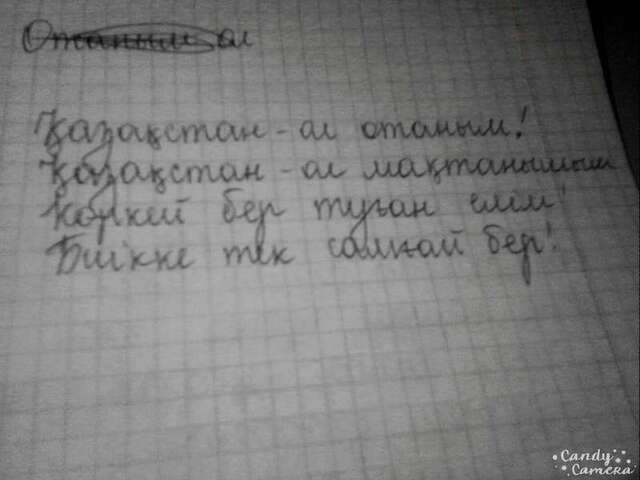 ал
Қазақстан - ал отаным!
Қазақстан - ал мақтанышым
Көркей бер туған елім!
Биікке тек бер!
Candy
Camera